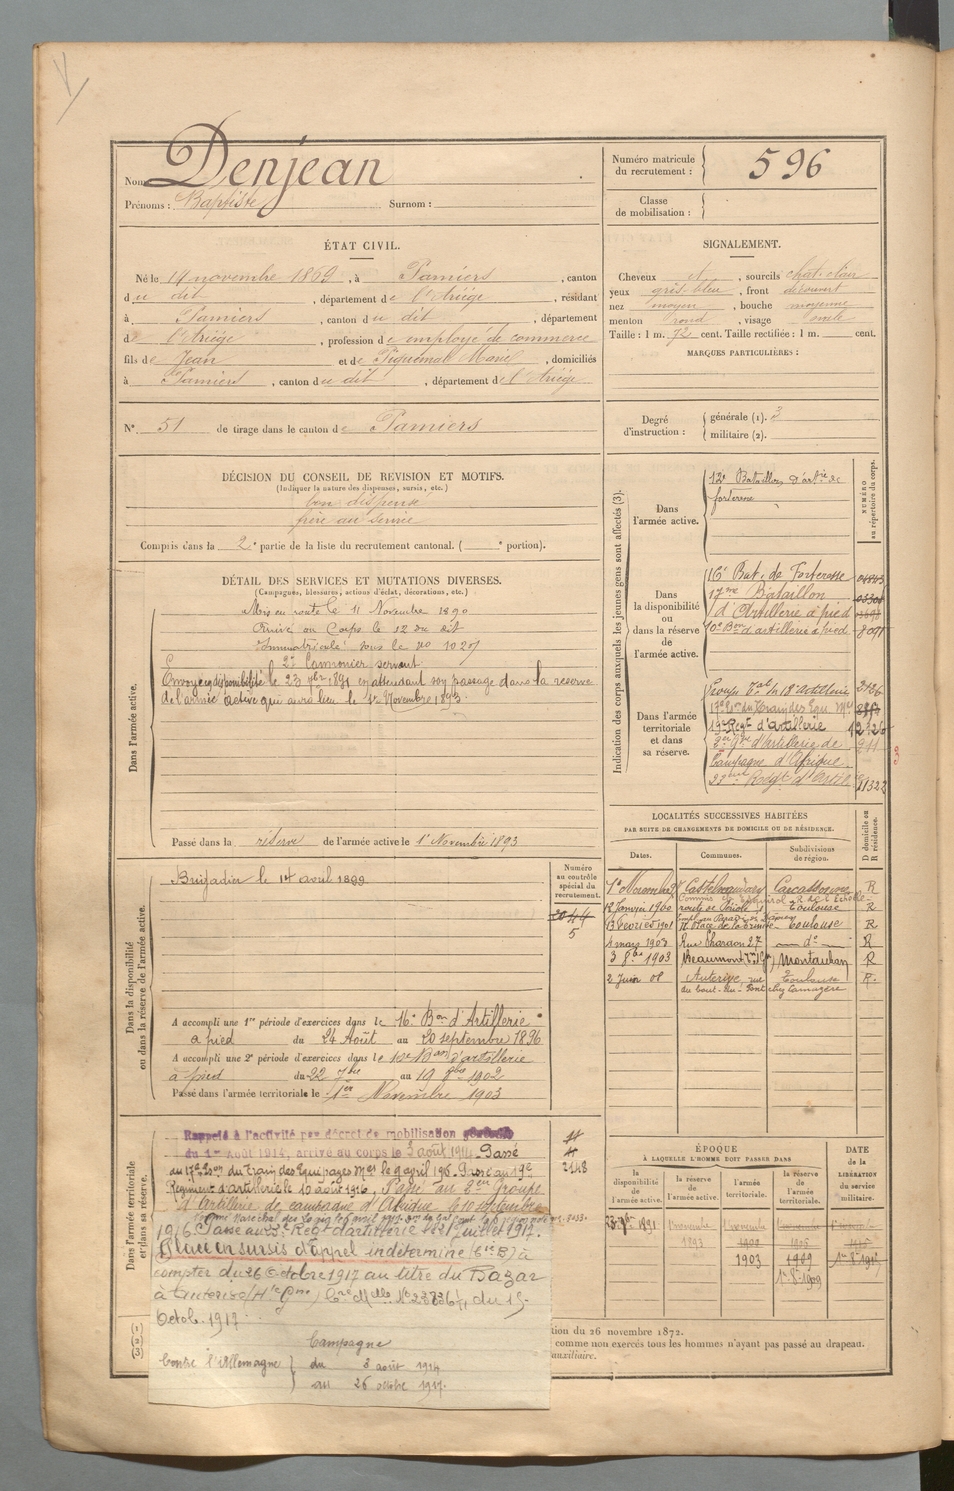 Nom Denjean
Prénoms : Baptiste Surnom :
Numéro matricule du recrutement : 596
Classe de mobilisation :
ÉTAT CIVIL.
Né le 14 novembre 1869, à Pamiers, canton
du dit, département de l'Ariège, résidant
à Pamiers, canton du dit, département
de l'Ariège, profession de employé de commerce
fils de Jean et de Piquemal Marie, domiciliés
à Pamiers, canton du dit, département de l'Ariège
N° 51 de tirage dans le canton de Pamiers
SIGNALEMENT.
Cheveux et, sourcils chat. clair
yeux gris-bleu, front découvert
nez moyen, bouche moyenne
menton rond, visage ovale
Taille : 1 m. 72 cent. Taille rectifiée : 1 m. cent.
MARQUES PARTICULIÈRES :
Degré d'instruction : générale (1). 3
militaire (2).
DÉCISION DU CONSEIL DE REVISION ET MOTIFS.
(Indiquer la nature des dispenses, sursis, etc.)
bon dispensé
frère au service
Compris dans la 2e partie de la liste du recrutement cantonal. ( e portion).
DÉTAIL DES SERVICES ET MUTATIONS DIVERSES.
(Campagnes, blessures, actions d'éclat, décorations, etc.)
Dans l'armée active.
Mis en route le 11 Novembre 1890
Arrivé au Corps le 12 du dit
Immatriculé sous le no 1027
2e Canonnier servant
Envoyé en disponibilité le 23 7bre 1891 en attendant son passage dans la réserve
de l'armée active qui aura lieu le 1er Novembre 1893.
Passé dans la réserve de l'armée active le 1er Novembre 1893
Dans la disponibilité ou dans la réserve de l'armée active.
Numéro au contrôle spécial du recrutement.
2044
5
Brigadier le 14 avril 1899
A accompli une 1re période d'exercices dans le 16e Bon d'Artillerie
à pied du 24 Août au 20 septembre 1896
A accompli une 2e période d'exercices dans le 10e Bon d'artillerie
à pied du 22 7bre au 19 8bre 1902
Passé dans l'armée territoriale le 1er Novembre 1903
Dans l'armée territoriale et dans sa réserve.
Rappelé à l'activité par décret de mobilisation générale
du 1er Août 1914, arrivé au corps le 3 août 1914. Passé
au 17e Eson du Train des Equipages Mres le 9 avril 1916. Passé au 19e
Régiment d'artillerie le 10 août 1916. Passé au 3eme Groupe
d'Artillerie de campagne d'Afrique le 10 septembre
1916. Passé au 23e Regt d'artillerie le 21 juillet 1917.
Placé en sursis d'appel indéterminé à
compter du 26 Octobre 1917 au titre du Bazar
à Auterive (Hte Gne) du 15
Octob. 1917
Campagne
Contre l'Allemagne du 3 août 1914
au 26 octobre 1917.
2148
Indication des corps auxquels les jeunes gens sont affectés (3).
NUMÉRO au répertoire du corps.
Dans l'armée active.
12e Bataillon d'artie de
forteresse
Dans la disponibilité ou dans la réserve de l'armée active.
16e Bat. de Forteresse
17me Bataillon
d'Artillerie à pied
10e Bon d'artillerie à pied 8091
Dans l'armée territoriale et dans sa réserve.
Groupe Teral du 18e artillerie
17e Eon du Train des Equ. Mres
19e Regt d'artillerie
3e Gpe d'Artillerie de 911
Campagne d'Afrique
23eme Régt d'Artie 21322
LOCALITÉS SUCCESSIVES HABITÉES
PAR SUITE DE CHANGEMENTS DE DOMICILE OU DE RÉSIDENCE.
Dates. Communes. Subdivisions de région. D domicile ou R résidence.
Castelnaudary Carcassonne R
12 Janvier 1900 Toulouse R
13 Février 1901 Toulouse R
1 mars 1903 Rue Pharaon 27 do R
3 8bre 1903 Beaumont Montauban R
2 Juin 08 Auterive, rue Toulouse R.
du bout-du-Pont chez Lamazère
ÉPOQUE
À LAQUELLE L'HOMME DOIT PASSER DANS
la disponibilité de l'armée active. la réserve de l'armée active. l'armée territoriale. la réserve de l'armée territoriale.
DATE de la LIBÉRATION du service militaire.
23 7bre 1891 1 novembre 1893 1 novembre
1903 1909
tion du 26 novembre 1872.
comme non exercés tous les hommes n'ayant pas passé au drapeau.
auxiliaire.